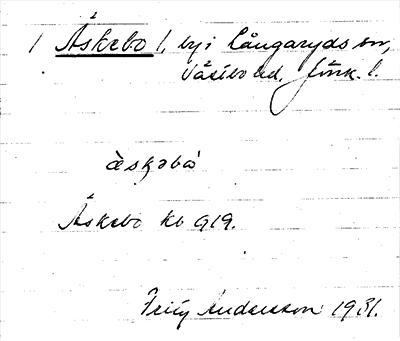 1 Åskebo l, by i Långaryds sn,
Västbo hd, Jönk. l.
Åskebo kb 919.
Andersson 1931.